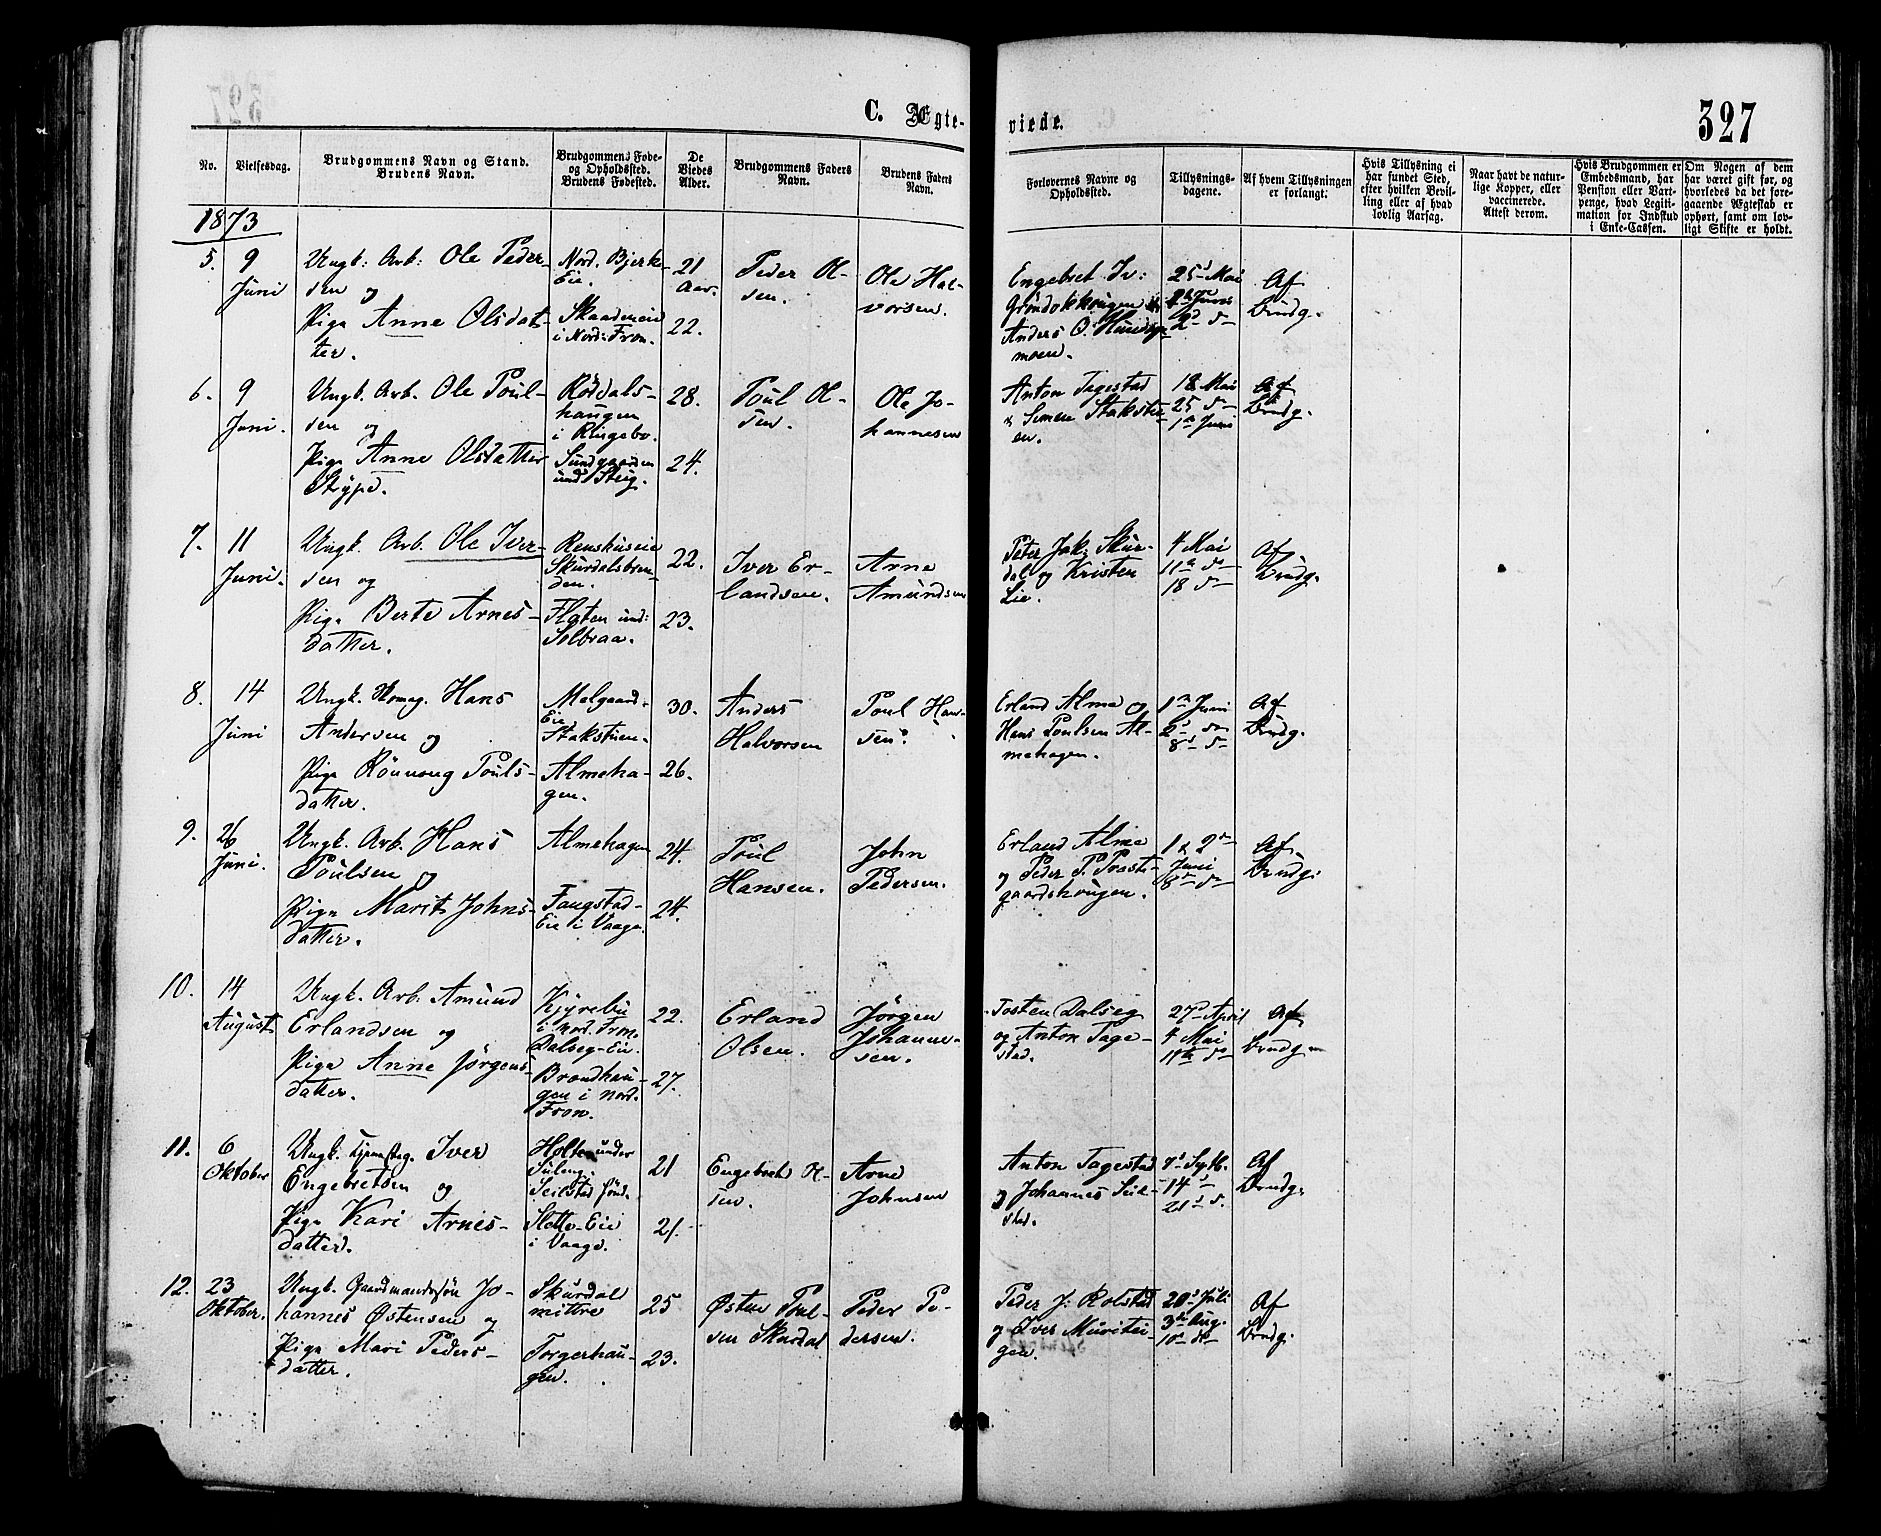 C. Ægte- viede.
327
No.
Vielsesdag.
Brudgommens Navn og Stand.
Brudens Navn.
Brudgommens Føde-
og Opholdssted.
Brudens Fødested.
De
Viedes
Alder.
Brudgommens Faders
Navn.
Brudens Faders
Navn.
Forlovernes Navne og
Opholdssted.
Tillysnings-
dagene.
Af hvem Tillysningen
er forlangt.
Hvis Tillysning ei
har fundet Sted,
efter hvilken Bevil-
ling eller af hvad
lovlig Aarsag.
Naar havt de natur-
lige Kopper, eller
vaccinerede.
Attest derom.
Hvis Brudgommen er
Embedsmand, har
Pension eller Vart-
penge, hvad Legiti-
mation for Indskud
i Enke-Cassen.
Om Nogen af dem
har været gift før, og
hvorledes da det fore-
gaaende Ægteskab er
ophørt, samt om lov-
ligt Skifte er holdt.
1873
5.
9
Juni
Ungk. Arb. Ole Peder-
sen og
Pige Anne Olsdat-
ter.
Nord. Bjerke-
Eie.
Skaadereie
i Nord: Fron.
21
Aar.
22.
Peder Ol-
sen.
Ole Hal-
vorsen.
Engebret Iv:
Anders O.
moen.
25 Mai
2 d
Af
Brudg.
6.
9
Juni.
Ungk. Arb. Ole Poul-
sen og
Pige Anne Olsdatter
Strype.
Røddals-
haugen
i Ringebo.
Sundgaarden
und. Steig.
28.
24.
Poul Ol-
sen.
Ole Jo-
hannesen
Anton Tagestad
& Simen Stakstu-
en.
18 Mai
25 d
1 Juni
Af
Brudg.
7.
11
Juni.
Ungk. Arb. Ole Iver-
sen og
Pige Berte Arnes-
datter.
Renshuseie
Skurdalsbren-
den.
Flaten und:
Solbraa.
22.
23.
Iver Er-
landsen.
Arne
Amundsen
Peter Jak: Skur-
dal og Kristen
Lie.
4 Mai
11 d
18 d
Af
Brudg.
8.
14
Juni
Ungk. Skomag. Hans
Andersen og
Pige Rönnoug Pouls-
datter.
Melgaard-
Eie
Stakstuen.
Almeha-
gen.
30.
26.
Anders
Halvorsen
Poul Han-
sen.
Erland Alme og
Hans Poulsen Al-
mehagen.
1 Juni
2 d
8 d
Af
Brudg.
9.
26
Juni.
Ungk. Arb. Hans
Poulsen og
Pige Marit Johns-
datter.
Almehagen
Faugstad-
Eie i Vaage.
24.
24.
Poul
Hansen.
John
Pedersen.
Erland Alme
og Peder P. Præste-
gaardshougen.
1 & 2
Juni
8 d
Af
Brudg.
10.
14
August
Ungk. Arb. Amund
Erlandsen og
Pige Anne Jørgens-
datter.
Kjørebu
i Nord. Fron.
Dalseg-Eie.
Brændhau-
gen i Nord.
Fron.
22.
27.
Erland
Olsen.
Jørgen
Johanne-
sen.
Tosten Dalseg
og Anton Tage-
stad.
27 April
4 Mai
11 d
Af
Brudg.
11.
6
Oktober
Ungk. Tjenestg. Iver
Engebretsen og
Pige Kari Arnes-
datter.
Holte under
Seilstad
Slette-Eie
i Vaage.
21
21.
Engebret Ol-
sen.
Arne
Johnsen
Anton Tagestad
og Johannes Seil-
stad.
7 Septb.
14
21 d.
Af
Brudg.
12.
23
Oktober.
Ungk. Gaardmandssøn Jo-
hannes Østensen og
Pige Mari Peders-
datter.
Skurdal
mittre
Torgerhau-
gen.
25
23.
Østen Poul-
sen Skurdal
Peder Pe-
dersen.
Peder J. Kolstad
og Iver Muritei-
gen.
20 Juli
3 Aug.
10 d
Af
Brudg.